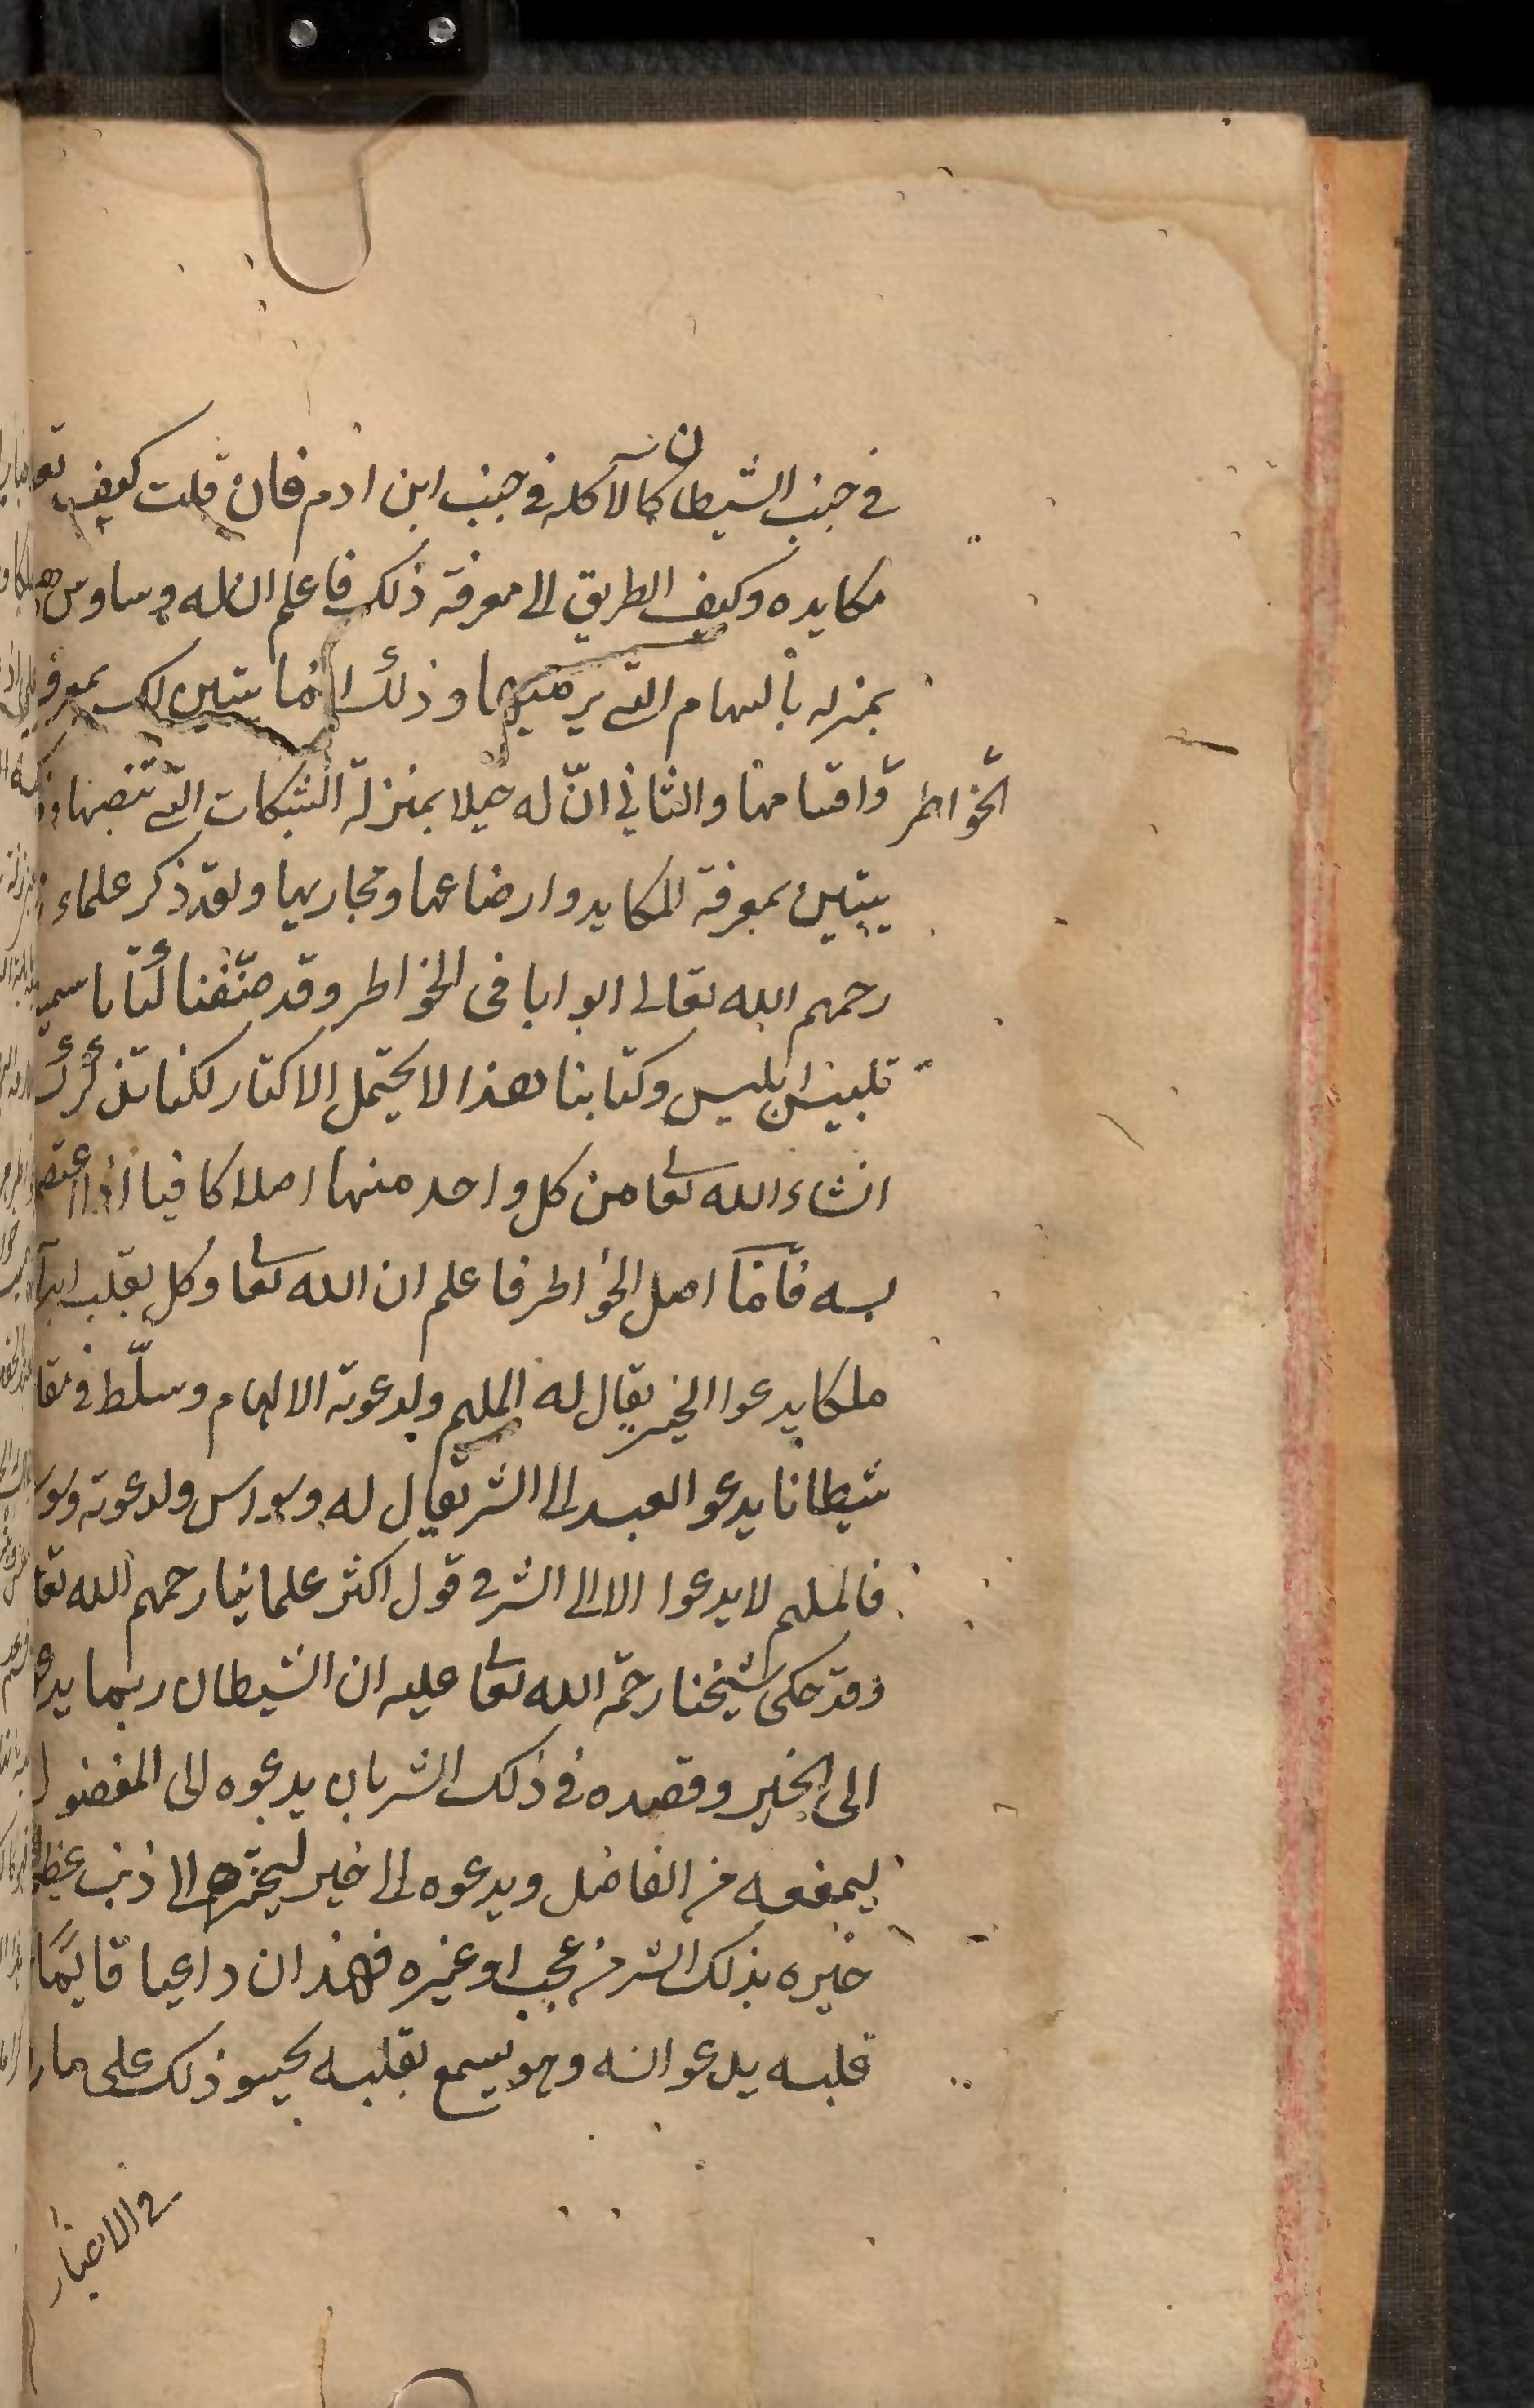 في جنب الشيطان كالآكلة في جنب ابن ادم فان قلت كيف
مكايده وكيف الطريق الى معرفة ذلك فاعلم ان له وساوس
بمنزله بالسهام التى يرميها وذلك انما يتبين لك بمعرفة
الخواطر واقسامها والثاني انّ له حيلا بمنزلة الشبكات التى تنصبها
يتبين بمعرفة المكايد وارضاعها ومجاريها ولقد ذكر علماء
رحمهم الله تعالى ابوابا فى الخواطر وقد صنّفنا كتابا سمينا
تلبيس ابليس وكتابنا هذا لا يحتمل الاكثار لكنا نذكر لك
انشاء الله تعا من كل واحد منها اصلا كافيا اذا اعتصم
به فامّا اصل الخواطر فاعلم ان الله تعا وكل بقلب ابن
ملكا يدعوا الخير يقال له الملهم ولدعوته الالهام وسلّط في مقا
شيطانا يدعو العبد الى الشر يقال له وسواس ولدعوته وسو
فالملهم لا يدعوا الا الى الشر في قول اكثر علماينا رحمهم الله تعا
وقد حكى شيخنا رحمة الله تعا عليه ان الشيطان ربما يدعو
الى الخير وقصده في ذلك الشر بان يدعوه الى المفضول
ليمنعه من الفاضل ويدعوه الى خير ليجره الى ذنب عظيم
خيره بذلك الشر من عجب او غيره فهذان داعيا قايمًا
قلبه يدعوانه وهو يسمع بقلبه يحيو ذلك على ما
في الاخبار